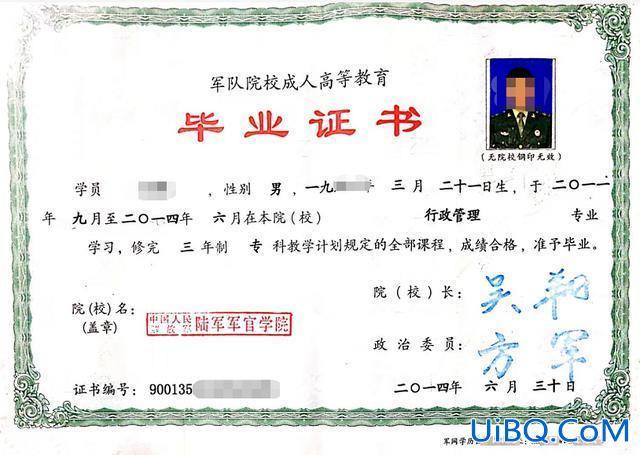 军队院校成人高等教育
毕业证书
(无院校钢印无效)
学员 ，性别 男，一九 年 三月 二十一日生，于 二〇一一
年 九月至二〇一四年 六月在本院(校) 行政管理 专业
学习，修完 三年制 专 科教学计划规定的全部课程，成绩合格，准予毕业。
院(校)长：吴翔
院(校)名：
(盖章)
中国人民解放军 陆军军官学院
政治委员：方军
证书编号：900135
二〇一四年 六月 三十日
军网学历
UiBQ.CoM